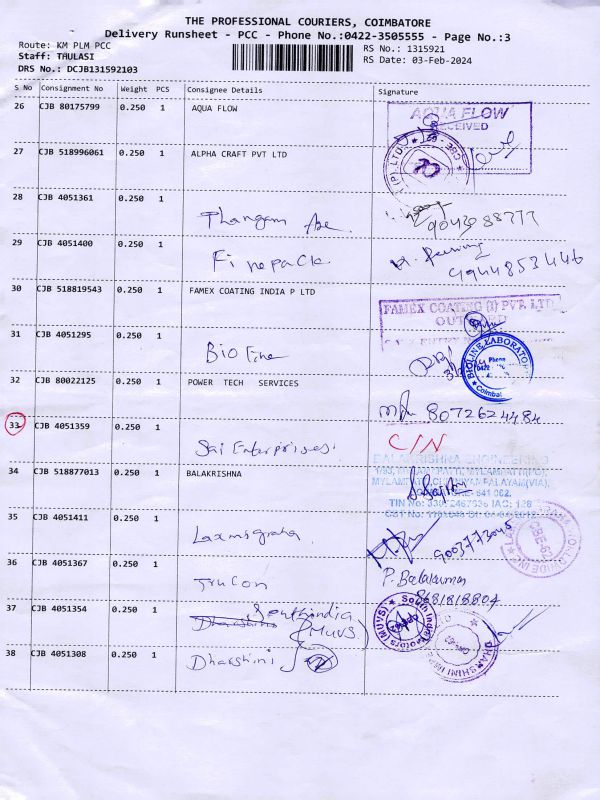 THE PROFESSIONAL COURIERS, COIMBATORE
Delivery Runsheet - PCC - Phone No.:0422-3505555 - Page No.:3
Route: KM PLM PCC
RS No.: 1315921
Staff: THULASI
RS Date: 03-Feb-2024
DRS No.: DCJB131592103
S No Consignment No Weight PCS Consignee Details Signature
26 CJB 80175799 0.250 1 AQUA FLOW
AQUA FLOW
RECEIVED
27 CJB 518996061 0.250 1 ALPHA CRAFT PVT LTD
(P) LTD
CBE
28 CJB 4051361 0.250 1 Thangam
29 CJB 4051400 0.250 1 Finepack 9944853446
30 CJB 518819543 0.250 1 FAMEX COATING INDIA P LTD
FAMEX COATING (I) PVT. LTD
31 CJB 4051295 0.250 1 Bio line
BIOLINE LABORATORY
Phone
0422
Coimbat
32 CJB 80022125 0.250 1 POWER TECH SERVICES 8072624484
33 CJB 4051359 0.250 1 Sri Enterprises C/N
34 CJB 518877013 0.250 1 BALAKRISHNA
BALAKRISHNA ENGINEERING
35 CJB 4051411 0.250 1 Laxmigraha 9003773045
CBE-62
36 CJB 4051367 0.250 1 Trucon P. Balakumar
8681818804
37 CJB 4051354 0.250 1 Dharshini Southindia
(MUVS)
South India
(MUVS)
38 CJB 4051308 0.250 1 Dharshini
DHARSHINI